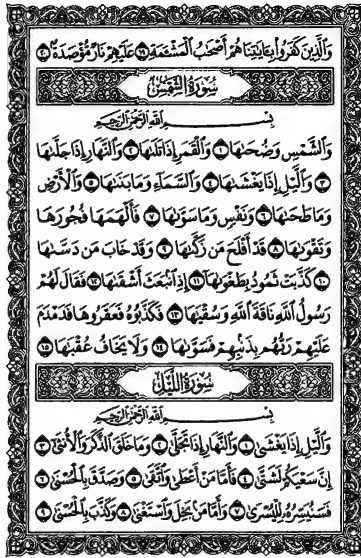 وَالَّذِينَ كَفَرُوا بِـَٔايَـٰتِنَا هُمْ أَصْحَـٰبُ الْمَشْـَٔمَةِ ١٩ عَلَيْهِمْ نَارٌ مُّؤْصَدَةٌ ٢٠
سُورَةُ الشَّمْسِ
بِسْمِ اللَّهِ الرَّحْمَـٰنِ الرَّحِيمِ
وَالشَّمْسِ وَضُحَىٰهَا ١ وَالْقَمَرِ إِذَا تَلَىٰهَا ٢ وَالنَّهَارِ إِذَا جَلَّىٰهَا
٣ وَالَّيْلِ إِذَا يَغْشَىٰهَا ٤ وَالسَّمَآءِ وَمَا بَنَىٰهَا ٥ وَالْأَرْضِ
وَمَا طَحَىٰهَا ٦ وَنَفْسٍ وَمَا سَوَّىٰهَا ٧ فَأَلْهَمَهَا فُجُورَهَا
وَتَقْوَىٰهَا ٨ قَدْ أَفْلَحَ مَن زَكَّىٰهَا ٩ وَقَدْ خَابَ مَن دَسَّىٰهَا
١٠ كَذَّبَتْ ثَمُودُ بِطَغْوَىٰهَا ١١ إِذِ انۢبَعَثَ أَشْقَىٰهَا ١٢ فَقَالَ لَهُمْ
رَسُولُ اللَّهِ نَاقَةَ اللَّهِ وَسُقْيَـٰهَا ١٣ فَكَذَّبُوهُ فَعَقَرُوهَا فَدَمْدَمَ
عَلَيْهِمْ رَبُّهُم بِذَنۢبِهِمْ فَسَوَّىٰهَا ١٤ وَلَا يَخَافُ عُقْبَـٰهَا ١٥
سُورَةُ اللَّيْلِ
بِسْمِ اللَّهِ الرَّحْمَـٰنِ الرَّحِيمِ
وَالَّيْلِ إِذَا يَغْشَىٰ ١ وَالنَّهَارِ إِذَا تَجَلَّىٰ ٢ وَمَا خَلَقَ الذَّكَرَ وَالْأُنثَىٰٓ ٣
إِنَّ سَعْيَكُمْ لَشَتَّىٰ ٤ فَأَمَّا مَنْ أَعْطَىٰ وَاتَّقَىٰ ٥ وَصَدَّقَ بِالْحُسْنَىٰ ٦
فَسَنُيَسِّرُهُۥ لِلْيُسْرَىٰ ٧ وَأَمَّا مَنۢ بَخِلَ وَاسْتَغْنَىٰ ٨ وَكَذَّبَ بِالْحُسْنَىٰ ٩